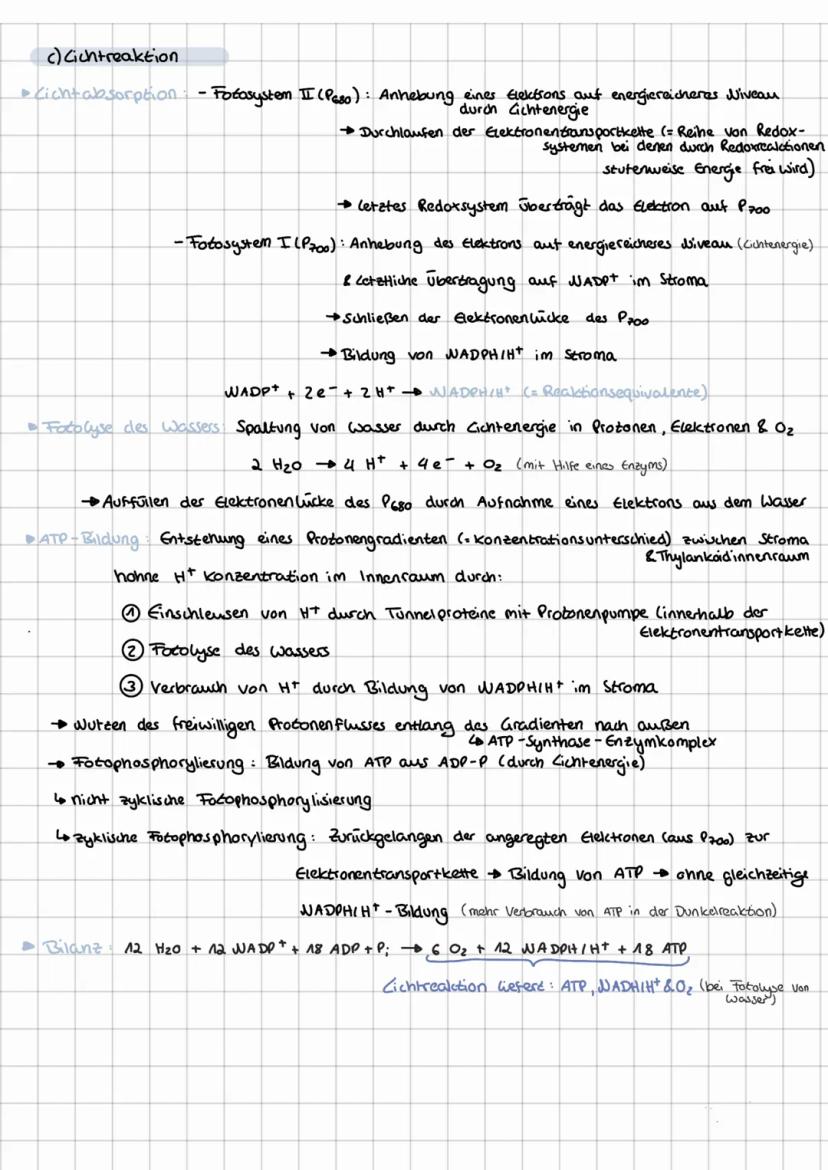 c) Lichtreaktion
▸ Lichtabsorption: - Fotosystem II (P680): Anhebung eines Elektrons auf energiereicheres Niveau
durch Lichtenergie
→ Durchlaufen der Elektronentransportkette (= Reihe von Redox-
systemen bei denen durch Redoxreaktionen
stufenweise Energie frei wird)
→ letztes Redoxsystem überträgt das Elektron auf P700
- Fotosystem I (P700): Anhebung des Elektrons auf energiereicheres Niveau (Lichtenergie)
& letztliche Übertragung auf NADP⁺ im Stroma
→ Schließen der Elektronenlücke des P700
→ Bildung von NADPH/H⁺ im Stroma
NADP⁺ + 2e⁻ + 2 H⁺ → NADPH/H⁺ (= Reaktionsequivalente)
▸ Fotolyse des Wassers: Spaltung von Wasser durch Lichtenergie in Protonen, Elektronen & O₂
2 H₂O → 4 H⁺ + 4e⁻ + O₂ (mit Hilfe eines Enzyms)
→ Auffüllen der Elektronenlücke des P680 durch Aufnahme eines Elektrons aus dem Wasser
▸ ATP-Bildung: Entstehung eines Protonengradienten (= Konzentrationsunterschied) zwischen Stroma
& Thylankoidinnenraum
hohne H⁺ Konzentration im Innenraum durch:
① Einschleusen von H⁺ durch Tunnelproteine mit Protonenpumpe (innerhalb der
Elektronentransportkette)
② Fotolyse des Wassers
③ Verbrauch von H⁺ durch Bildung von NADPH/H⁺ im Stroma
→ Nutzen des freiwilligen Protonenflusses entlang des Gradienten nach außen
↳ ATP-Synthase-Enzymkomplex
→ Fotophosphorylierung: Bildung von ATP aus ADP-P (durch Lichtenergie)
↳ nicht zyklische Fotophosphorylisierung
↳ zyklische Fotophosphorylierung: Zurückgelangen der angeregten Elektronen (aus P700) zur
Elektronentransportkette → Bildung von ATP → ohne gleichzeitige
NADPH/H⁺-Bildung (mehr Verbrauch von ATP in der Dunkelreaktion)
▸ Bilanz: 12 H₂O + 12 NADP⁺ + 18 ADP + Pi → 6 O₂ + 12 NADPH/H⁺ + 18 ATP
Lichtreaktion liefert: ATP, NADH/H⁺ & O₂ (bei Fotolyse von
Wasser)